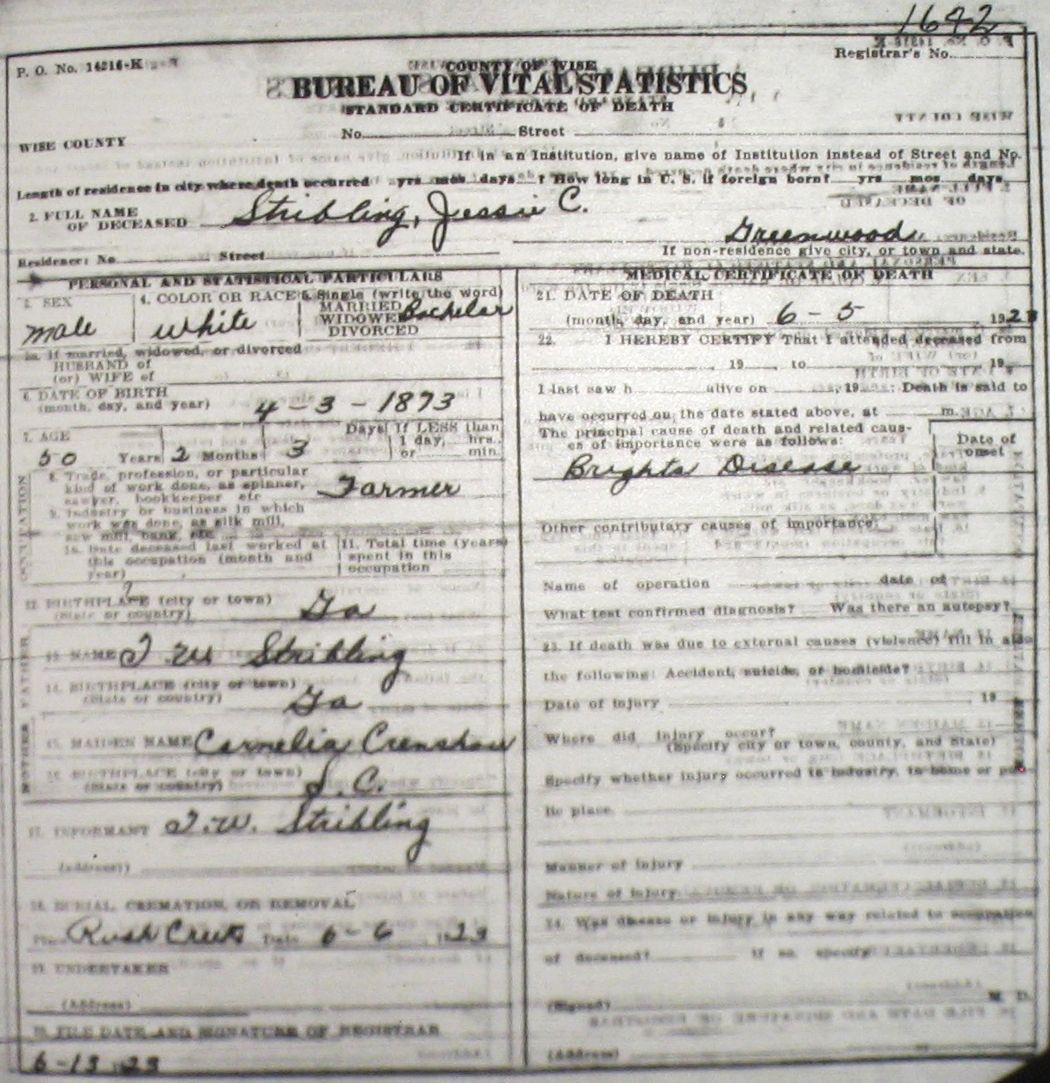 1642
P. O. No. 14216-K
Registrar's No.
COUNTY OF WISE
BUREAU OF VITAL STATISTICS
STANDARD CERTIFICATE OF DEATH
No. Street
WISE COUNTY
If in an Institution, give name of Institution instead of Street and No.
Length of residence in city where death occurred yrs mos days ? How long in U. S. if foreign born? yrs mos days
2. FULL NAME OF DECEASED Stribling, Jessie C.
Greenwood
Residence: No Street If non-residence give city, or town and state.
PERSONAL AND STATISTICAL PARTICULARS
3. SEX male
4. COLOR OR RACE White
5. Single (write the word)
MARRIED
WIDOWED Bachelor
DIVORCED
5a. If married, widowed, or divorced
HUSBAND of
(or) WIFE of
6. DATE OF BIRTH
(month, day, and year) 4-3-1873
7. AGE 50 Years 2 Months 3 Days If LESS than
1 day, hrs.
or min.
OCCUPATION
8. Trade, profession, or particular
kind of work done, as spinner,
sawyer, bookkeeper etc Farmer
9. Industry or business in which
work was done, as silk mill,
saw mill, bank, etc
10. Date deceased last worked at
this occupation (month and
year)
11. Total time (years)
spent in this
occupation
12. BIRTHPLACE (city or town)
(State or country) Ga
FATHER
13. NAME J W Stribling
14. BIRTHPLACE (city or town)
(State or country) Ga
MOTHER
15. MAIDEN NAME Cornelia Crenshaw
16. BIRTHPLACE (city or town)
(State or country) S. C.
17. INFORMANT J. W. Stribling
(Address)
18. BURIAL, CREMATION, OR REMOVAL
Place Rush Creek Date 6-6 1923
19. UNDERTAKER
(Address)
20. FILE DATE AND SIGNATURE OF REGISTRAR
6-13 1923
MEDICAL CERTIFICATE OF DEATH
21. DATE OF DEATH
(month, day, and year) 6-5 1923
22. I HEREBY CERTIFY That I attended deceased from
, 19 , to 19
I last saw h alive on , 19 : Death is said to
have occurred on the date stated above, at m.
The principal cause of death and related caus-
es of importance were as follows:
Date of
onset
Brights Disease
Other contributary causes of importance:
Name of operation date of
What test confirmed diagnosis? Was there an autopsy?
23. If death was due to external causes (violence) fill in also
the following: Accident, suicide, or homicide?
Date of injury 19
Where did injury occur?
(Specify city or town, county, and State)
Specify whether injury occurred in industry, in home or pub-
lic place.
Manner of injury
Nature of injury
24. Was disease or injury in any way related to occupation
of deceased? If so, specify
(Signed) M. D.
(Address)